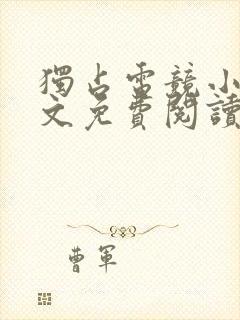 獨占電競小
文免費閱讀
曹軍